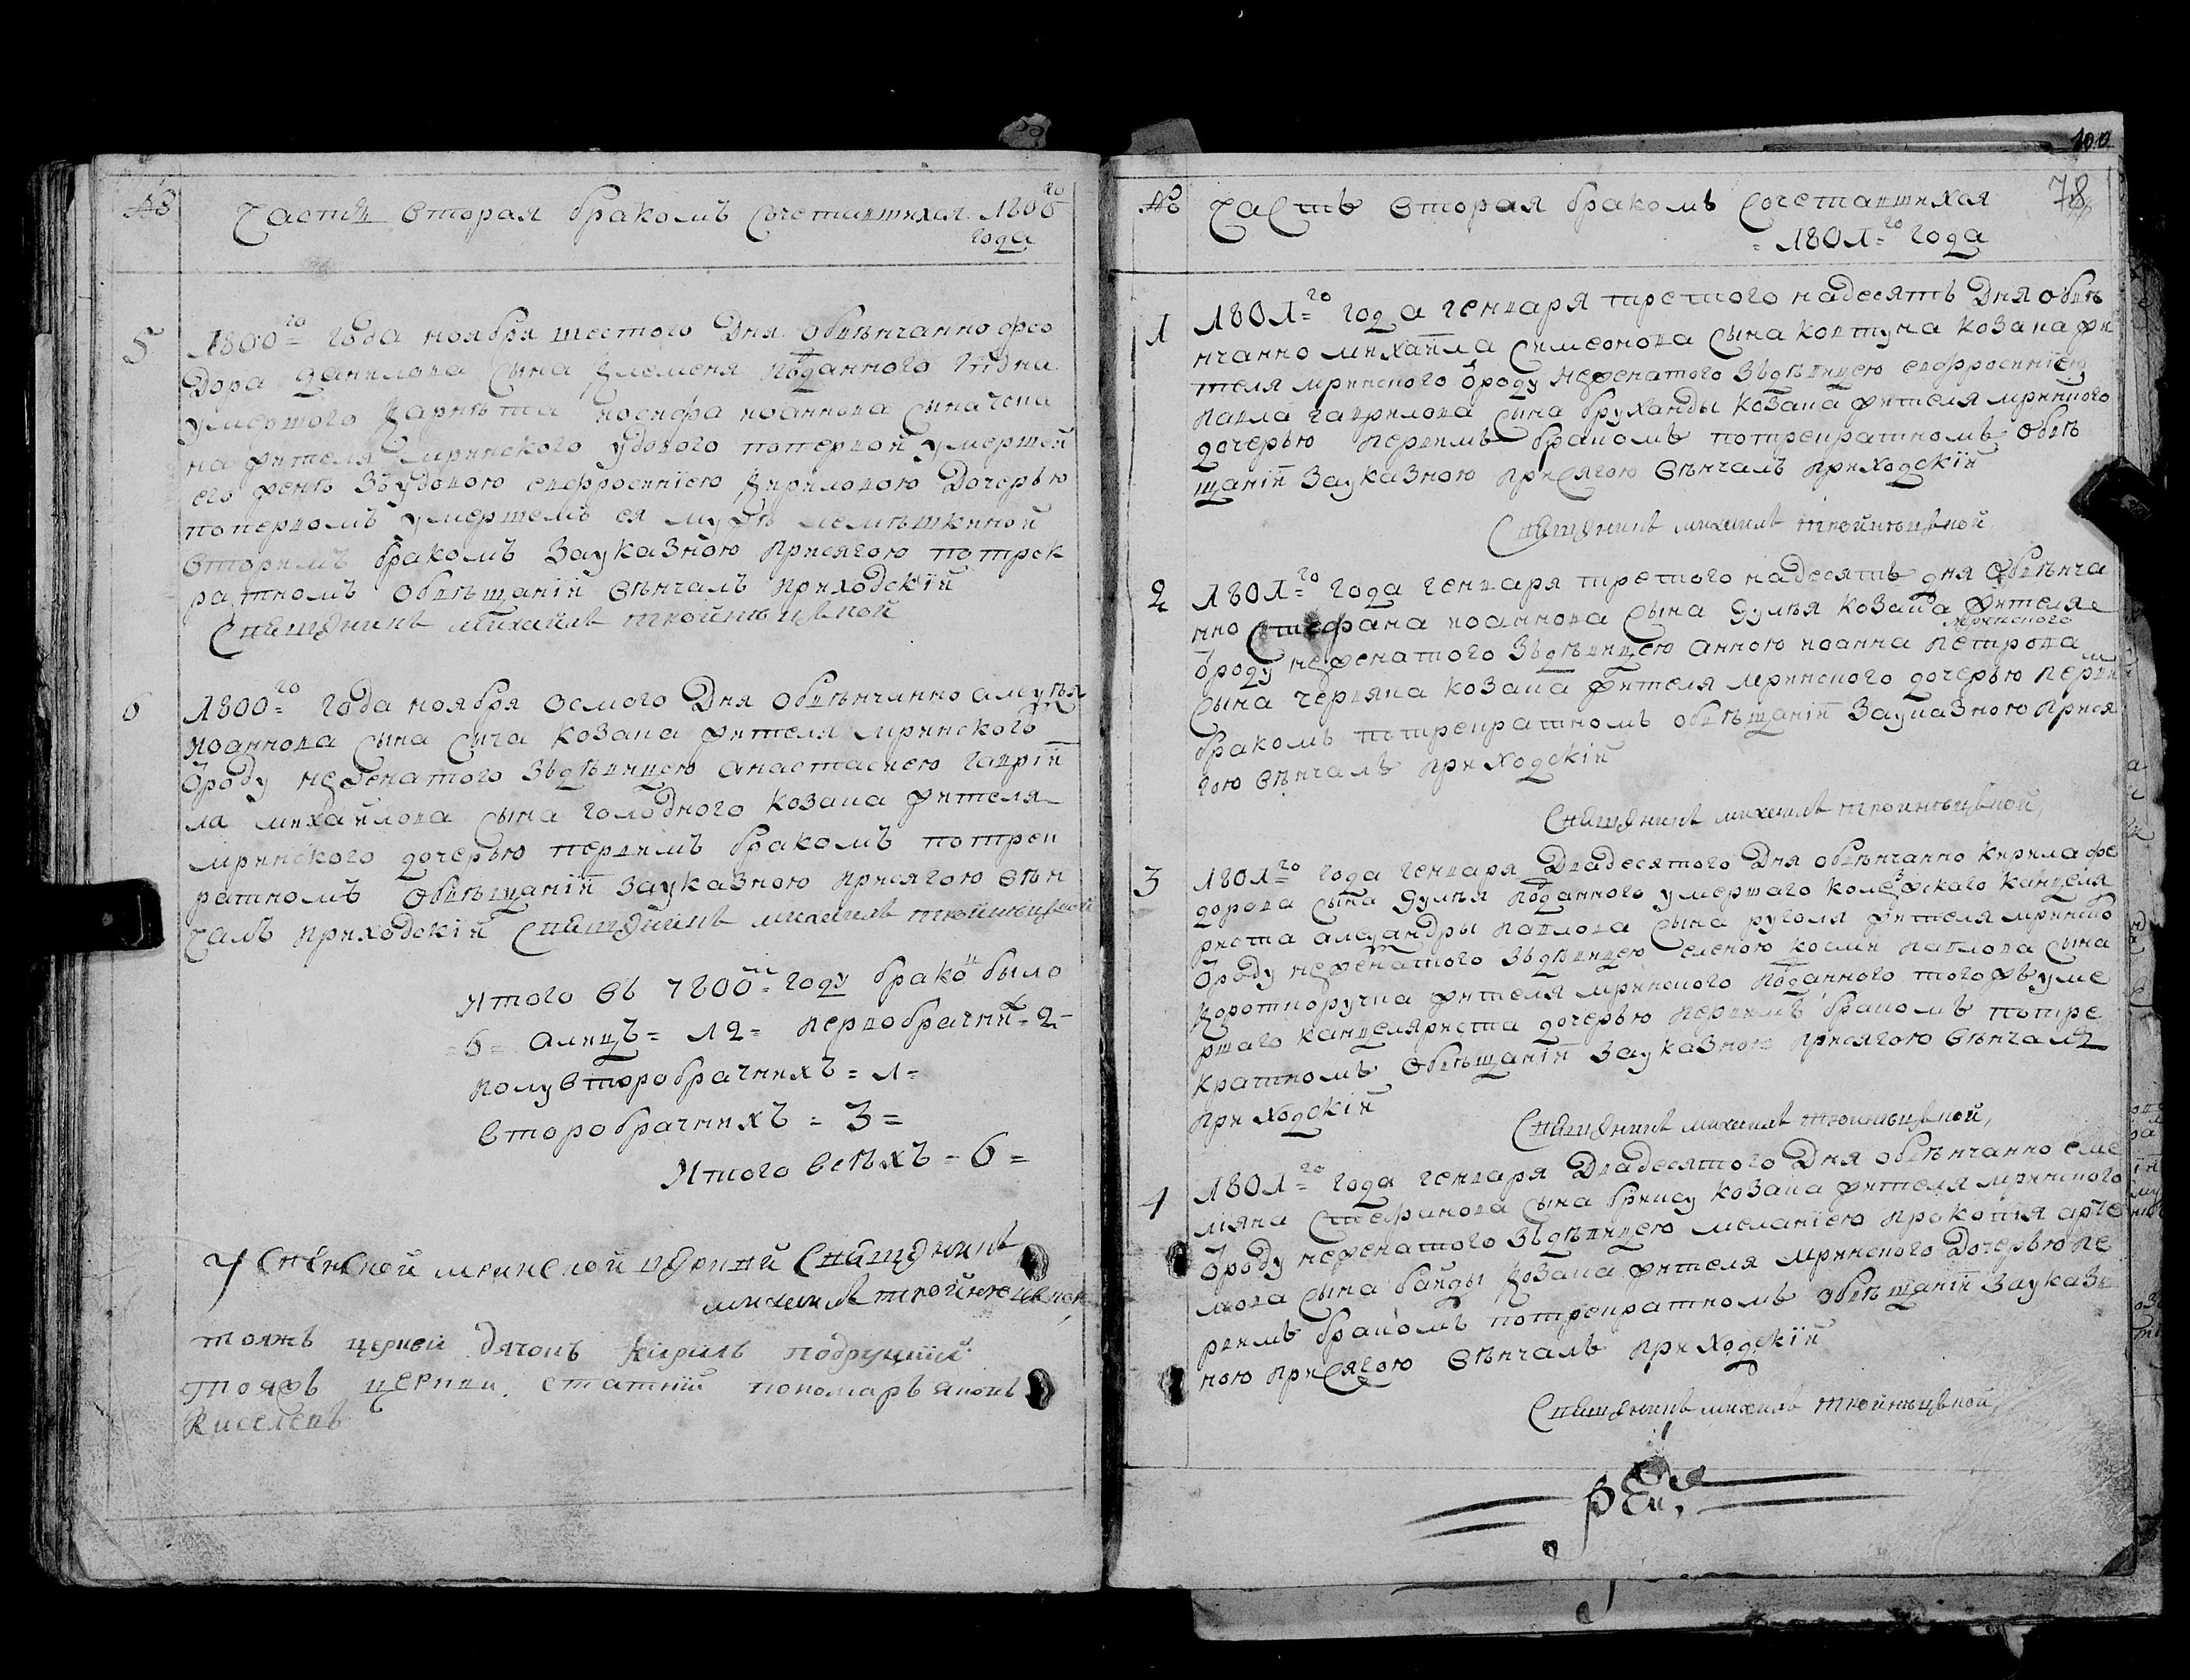 №
Часть вторая бракомъ сочетавшихся 1800го
года
5
1800=го года ноября шестого дня обвѣнчанно фео
дора данилова сына клеменя подданного
умершого корнѣта иосифа иоаннова сына
на жителя мринского удового попервой умершей
его женѣ зъудовою евфросиниею кириловою дочерью
попервомъ умершемъ ея мужѣ
вторимъ бракомъ зауказною присягою потрек
ратномъ обвѣщаніи вѣнчалъ приходскій
Священникъ михаилъ
6
1800=го года ноября осмого дня обвѣнчанно алеѯѣя
иоаннова сына сича козака жителя мринского
ѿроду неженатого зъдѣвицею анастасиею гаврій
ла михайлова сына голодного козака жителя
мринского дочерью первимъ бракомъ потрек
ратномъ обвѣщаніи зауказною присягою вѣн
чалъ приходскій Священникъ михаилъ
Итого въ 1800=м году браковъ было
=6= а лицъ= 12= первобрачнихъ=2=
полувторобрачнихъ=1=
второбрачнихъ=3=
Итого всѣхъ=6=
Успенской мринской церкви Священникъ
михаилъ
тояжъ церкви дячокъ кирилъ
тояжъ церкви статній пономаръ яковъ
Киселевъ
100
78
№
Часть вторая бракомъ сочетавшихся
=1801=го года
1
1801=го года генваря третого надесять дня обвѣ
нчанно михайла симеонова сына ковтуна козака жи
теля мринского ѿроду неженатого зъдѣвицею евфросиніею
павла гаврилова сына бруханды козака жителя мринского
дочерью первимъ бракомъ потрекратномъ обвѣ
щаній зауказною присягою вѣнчалъ приходскій
Священникъ михаилъ
2
1801=го года генваря третого надесять дня обвѣнча
нно Стефана иоаннова сына дулѣя козака жителя
мринского
ѿроду неженатого зъдѣвицею анною иоанна петрова
сына червяка козака жителя мринского дочерью перви
бракомъ потрекратномъ обвѣщаній зауказною прися
гою вѣнчалъ приходскій
Священникъ михаилъ
3
1801=го года генваря двадесятого дня обвѣнчанно кирила фе
дорова сына дулѣя подданного умершаго колежскаго канцеля
риста алеѯандры павлова сына руголя жителя мринско
ѿроду неженатого зъдѣвицею еленою косми павлова сына
коротноручка жителя мринского подданного тогожъ уме
ршаго канцеляриста дочерью первимъ бракомъ потре
кратномъ обвѣщаній зауказною присягою вѣнчалъ
приходскій
Священникъ михаилъ
4
1801=го года генваря двадесятого дня обвѣнчанно еме
ліяна Стефанова сына брицу козака жителя мринского
ѿроду неженатого зъдѣвицею меланіею прокопія арте
мова сына байды козака жителя мринского дочерью пе
рвимъ бракомъ потрекратномъ обвѣщаній зауказ
ною присягою вѣнчалъ приходскій
Священникъ михаилъ